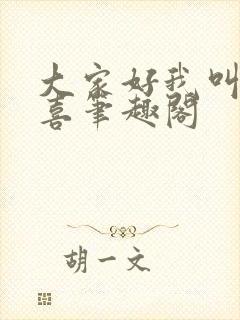 大家好我叫
喜笔趣阁
胡一文